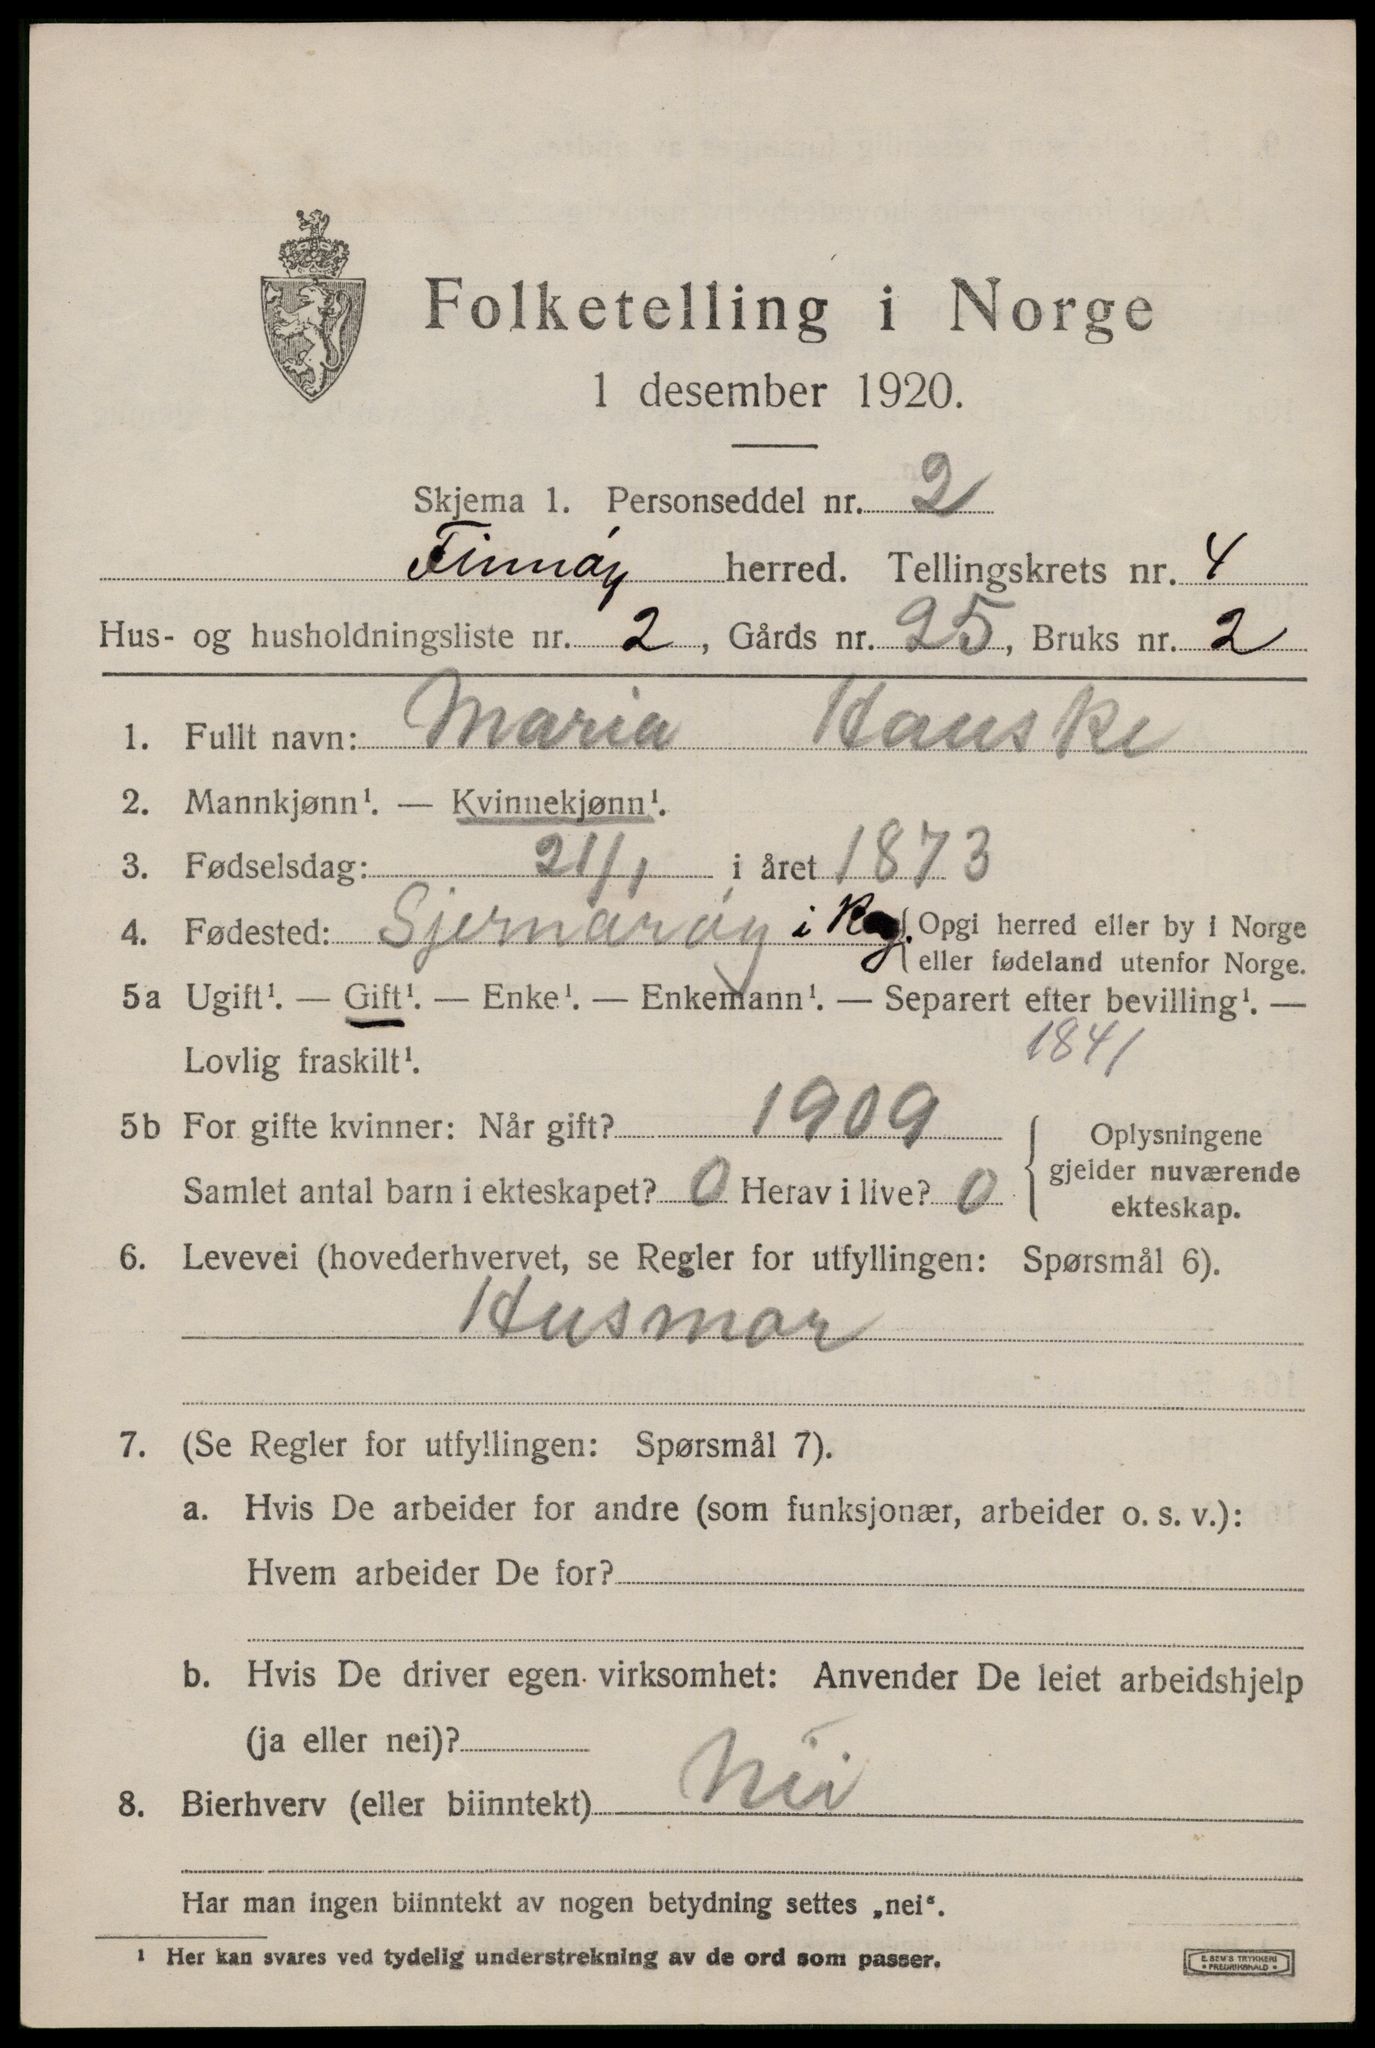 Folketelling i Norge
1 desember 1920.
Skjema 1. Personseddel nr. 2
Finnøy herred. Tellingskrets nr. 4
Hus- og husholdningsliste nr. 2, Gårds nr. 25, Bruks nr. 2
1. Fullt navn: Maria Hauske
2. Mannkjønn¹. — Kvinnekjønn¹.
3. Fødselsdag: 21/1 i året 1873
4. Fødested: Sjernarøy i Rog. Opgi herred eller by i Norge
eller fødeland utenfor Norge.
5a Ugift¹. — Gift¹. — Enke¹. — Enkemann¹. — Separert efter bevilling¹. —
Lovlig fraskilt¹. 1841
5b For gifte kvinner: Når gift? 1909
Samlet antal barn i ekteskapet? 0 Herav i live? 0
Oplysningene
gjelder nuværende
ekteskap.
6. Levevei (hovederhvervet, se Regler for utfyllingen: Spørsmål 6).
Husmor
7. (Se Regler for utfyllingen: Spørsmål 7).
a. Hvis De arbeider for andre (som funksjonær, arbeider o. s. v.):
Hvem arbeider De for?
b. Hvis De driver egen virksomhet: Anvender De leiet arbeidshjelp
(ja eller nei)?
8. Bierhverv (eller biinntekt) Nei
Har man ingen biinntekt av nogen betydning settes „nei“.
¹ Her kan svares ved tydelig understrekning av de ord som passer.
E. SEM'S TRYKKERI
FREDRIKSHALD